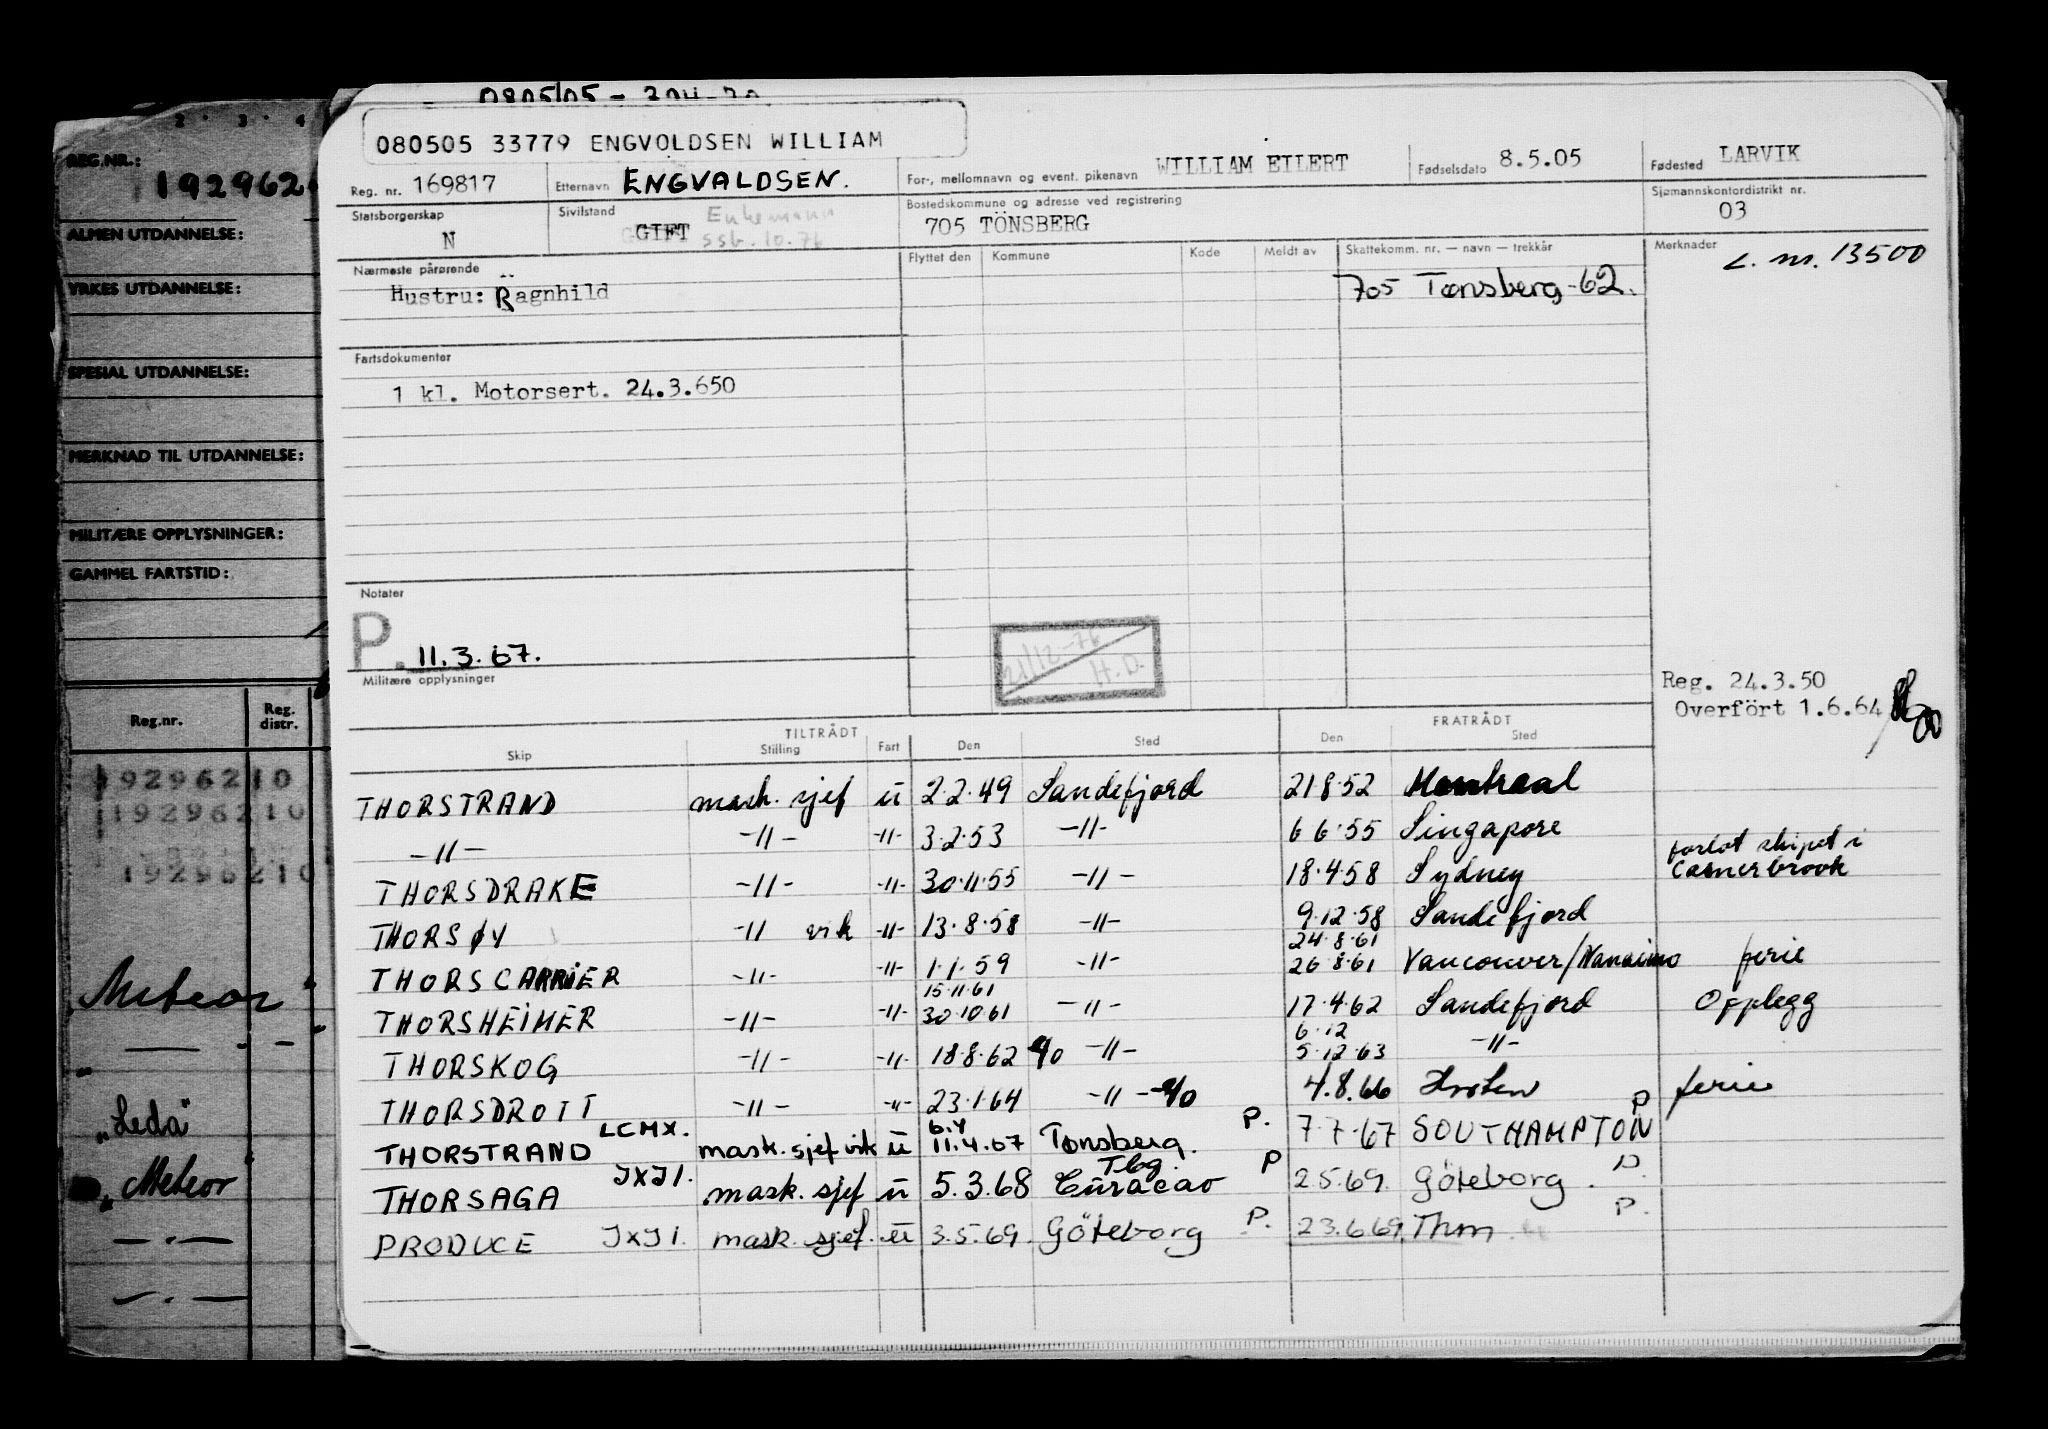 2 · 3 · 4
REG.NR.:
192962
ALMEN UTDANNELSE:
YRKES UTDANNELSE:
SPESIAL UTDANNELSE:
MERKNAD TIL UTDANNELSE:
MILITÆRE OPPLYSNINGER:
GAMMEL FARTSTID:
Reg.nr. Reg. distr.
19296210
19296210
19296210
Meteor
— - —
"Leda"
"Meteor
— . —
— . —
080505 33779 ENGVOLDSEN WILLIAM
Reg. nr. 169817 Etternavn ENGVALDSEN. For-, mellomnavn og event. pikenavn WILLIAM EILERT Fødselsdato 8.5.05 Fødested LARVIK
Statsborgerskap N Sivilstand GIFT Enkemann ssb. 10.76 Bostedskommune og adresse ved registrering 705 TÖNSBERG Sjømannskontordistrikt nr. 03
Nærmeste pårørende Flyttet den Kommune Kode Meldt av Skattekomm. nr. — navn — trekkår Merknader L. nr. 13500
Hustru: Ragnhild 705 Tønsberg-62.
Fartsdokumenter
1 kl. Motorsert. 24.3.650
Notater
P. 11.3.67.
21/12-76 H.D.
Militære opplysninger
Reg. 24.3.50
Overfört 1.6.64
TILTRÅDT FRATRÅDT
Skip Stilling Fart Den Sted Den Sted
THORSTRAND mask. sjef u 2.2.49 Sandefjord 21.8.52 Montreal
-"- -"- -"- 3.2.53 -"- 6.6.55 Singapore
THORSDRAKE -"- -"- 30.11.55 -"- 18.4.58 Sydney forlot skipet i Casnerbrook
THORSØY -"- vik -"- 13.8.58 -"- 9.12.58 Sandefjord
24.8.61
THORSCARRIER -"- -"- 1.1.59 -"- 26.8.61 Vancouver/Nanaimo ferie
15.11.61
THORSHEIMER -"- -"- 30.10.61 -"- 17.4.62 Sandefjord Opplegg
6.12
THORSKOG -"- -"- 18.8.62 -"- 5.12.63 -"-
THORSDROTT -"- -"- 23.1.64 -"- 4.8.66 Horten ferie
6.4
THORSTRAND LCMX. mask. sjef vik u 11.4.67 Tønsberg. P. 7.7.67 SOUTHAMPTON P
Tbg.
THORSAGA JXJI. mask. sjef u 5.3.68 Curacao P 2.5.69. Göteborg. P.
PRODUCE JXJI. mask. sjef. u 3.5.69. Göteborg P. 23.6.69. Thm P.